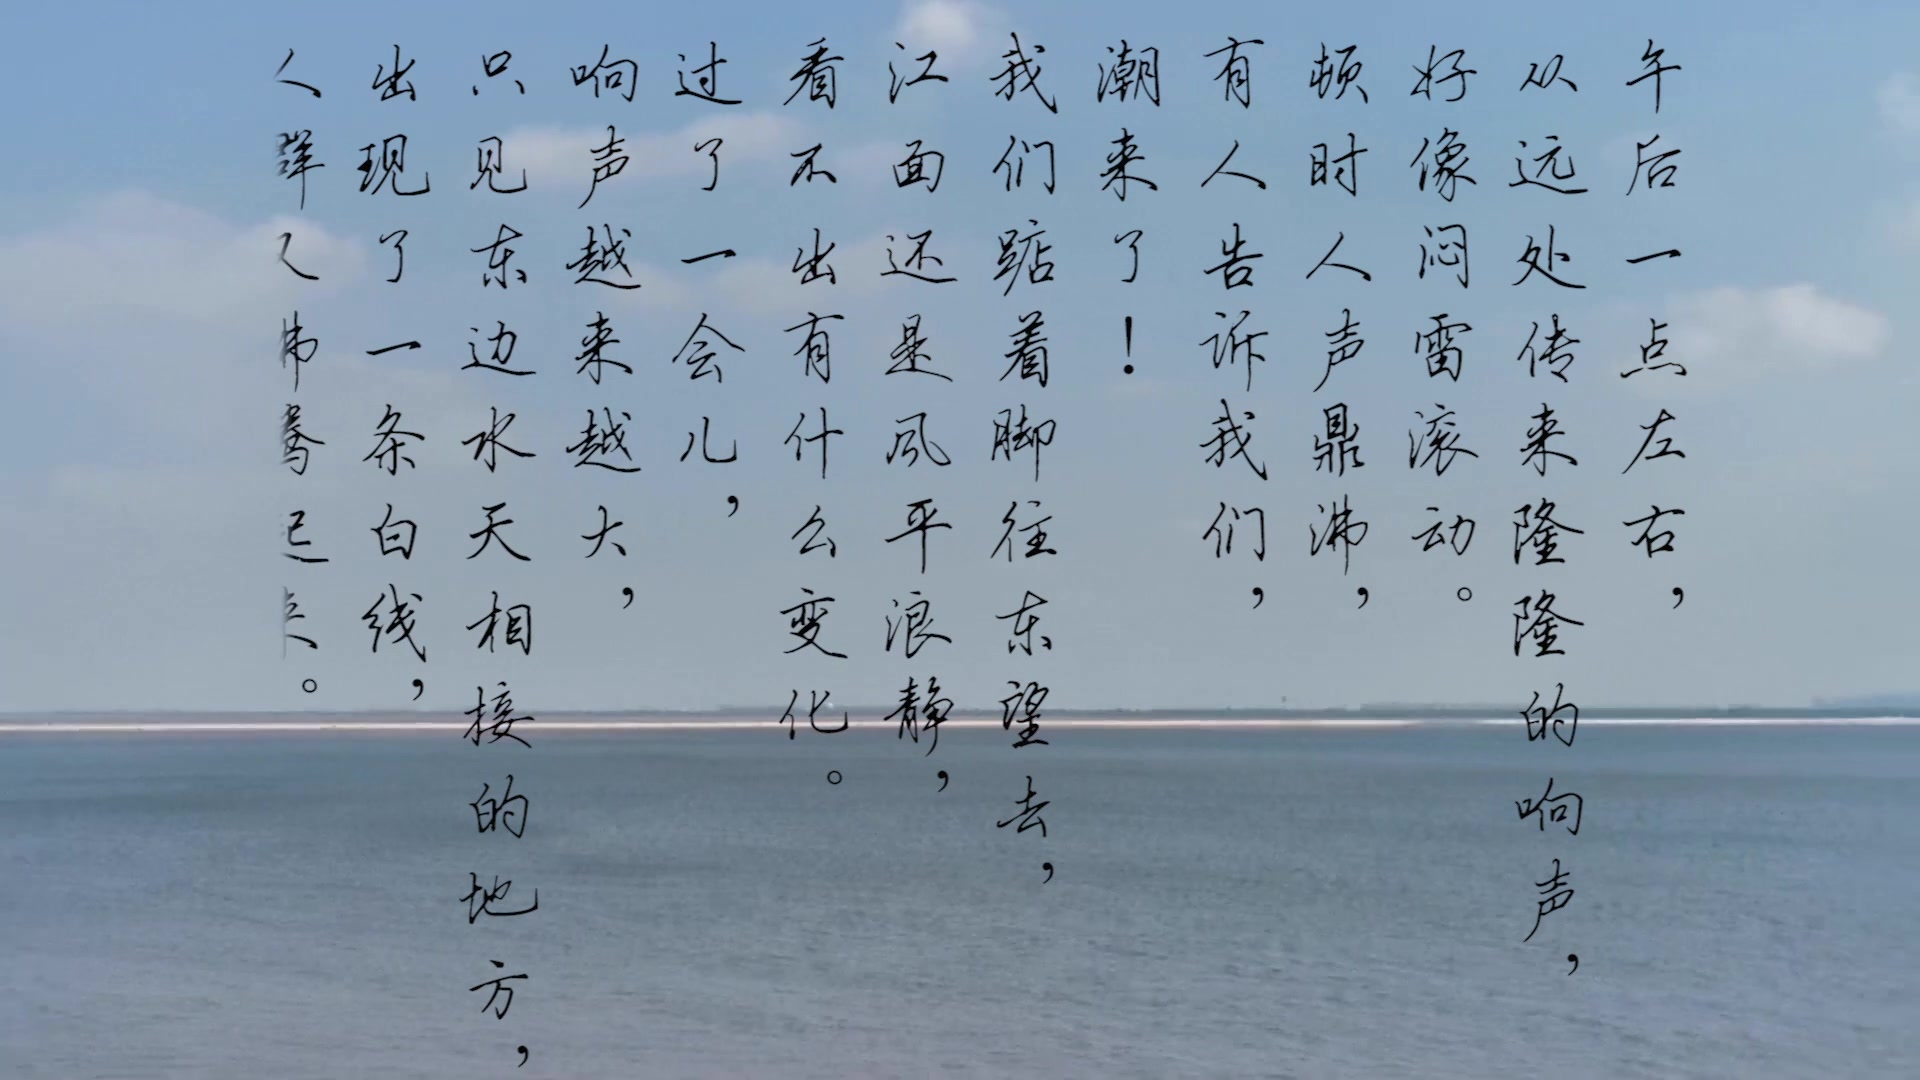 午后一点左右，
从远处传来隆隆的响声，
好像闷雷滚动。
顿时人声鼎沸，
有人告诉我们，
潮来了！
我们踮着脚往东望去，
江面还是风平浪静，
看不出有什么变化。
过了一会儿，
响声越来越大，
只见东边水天相接的地方，
出现了一条白线，
人群又沸腾起来。